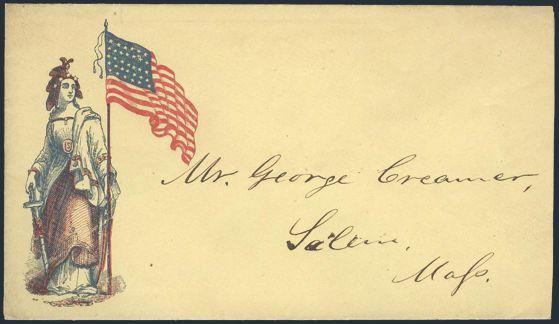 Mr. George Creamer,
Salem,
Mass.